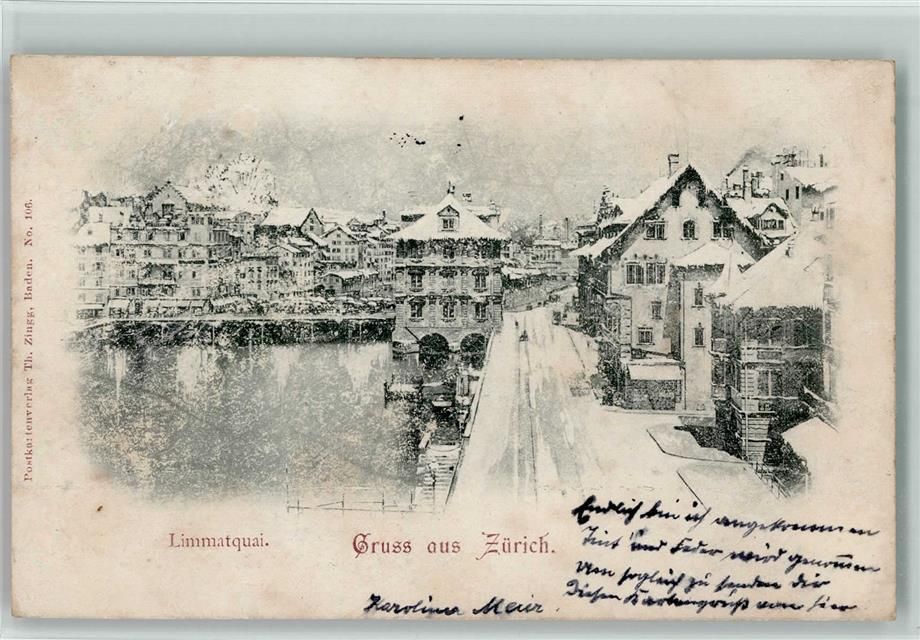 Postkartenverlag Th. Zingg, Baden. No. 106.
Limmatquai.
Gruss aus Zürich.
Endlich bin ich angekommen
Tint' und Feder wird genommen
Um sogleich zu senden dir
Diesen Kartengruß von hier
Karolina Meier